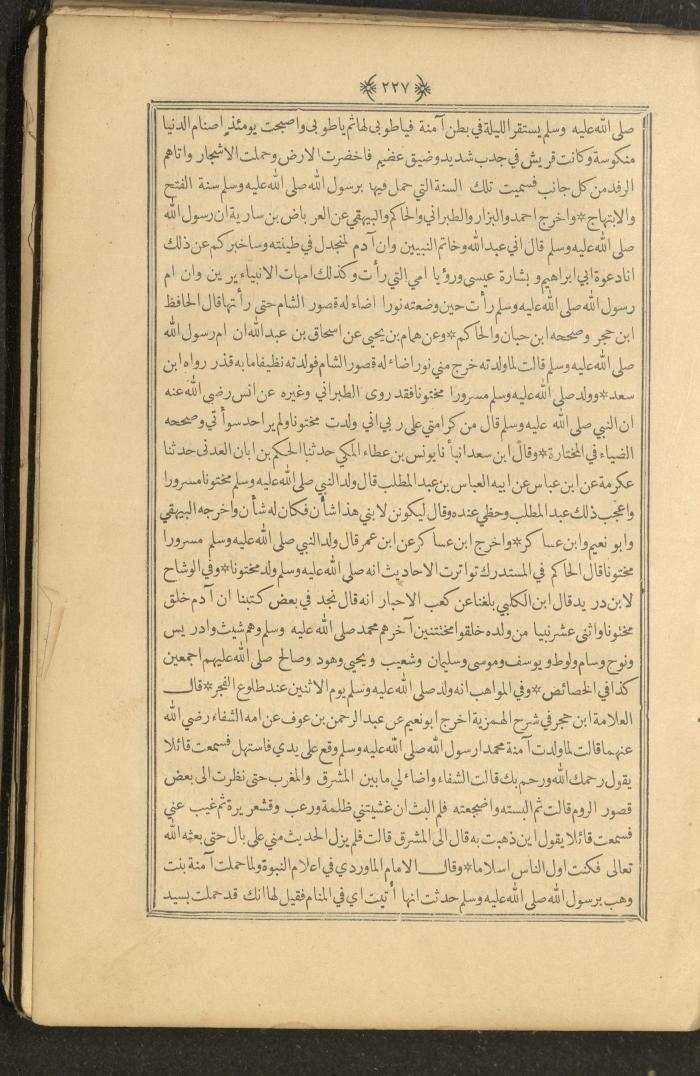 ٢٢٧
صلى الله عليه وسلم يستقر الليلة في بطن آمنة فيا طوبى لها ثم يا طوبى واصبحت يومئذ اصنام الدنيا
منكوسة وكانت قريش في جدب شديد وضيق عظيم فاخضرت الارض وحملت الاشجار واتاهم
الرفد من كل جانب فسميت تلك السنة التي حمل فيها برسول الله صلى الله عليه وسلم سنة الفتح
والابتهاج * واخرج احمد والبزار والطبراني والحاكم والبيهقي عن العرباض بن سارية ان رسول الله
صلى الله عليه وسلم قال اني عبد الله وخاتم النبيين وان آدم لمنجدل في طينته وساخبركم عن ذلك
انا دعوة ابي ابراهيم وبشارة عيسى ورؤيا امي التي رأت وكذلك امهات الانبياء يرين وان ام
رسول الله صلى الله عليه وسلم رأت حين وضعته نورا اضاء له قصور الشام حتى رأتها قال الحافظ
ابن حجر وصححه ابن حبان والحاكم * وعن همام بن يحيى عن اسحاق بن عبد الله ان ام رسول الله
صلى الله عليه وسلم قالت لما ولدته خرج مني نور اضاء له قصور الشام فولدته نظيفا ما به قذر رواه ابن
سعد * وولد صلى الله عليه وسلم مسرورا مختونا فقد روى الطبراني وغيره عن انس رضي الله عنه
ان النبي صلى الله عليه وسلم قال من كرامتي على ربي اني ولدت مختونا ولم ير احد سوأتي وصححه
الضياء في المختارة * وقال ابن سعد انبأنا يونس بن عطاء المكي حدثنا الحكم بن ابان العدني حدثنا
عكرمة عن ابن عباس عن ابيه العباس بن عبد المطلب قال ولد النبي صلى الله عليه وسلم مختونا مسرورا
واعجب ذلك عبد المطلب وحظي عنده وقال ليكونن لابني هذا شأن فكان له شأن واخرجه البيهقي
وابو نعيم وابن عساكر * واخرج ابن عساكر عن ابن عمر قال ولد النبي صلى الله عليه وسلم مسرورا
مختونا قال الحاكم في المستدرك تواترت الاحاديث انه صلى الله عليه وسلم ولد مختونا * وفي الوشاح
لابن دريد قال ابن الكلبي بلغنا عن كعب الاحبار انه قال نجد في بعض كتبنا ان آدم خلق
مختونا واثنى عشر نبيا من ولده خلقوا مختتنين آخرهم محمد صلى الله عليه وسلم وهم شيث وادريس
ونوح وسام ولوط ويوسف وموسى وسليمان وشعيب ويحيى وهود وصالح صلى الله عليهم اجمعين
كذا في الخصائص * وفي المواهب انه ولد صلى الله عليه وسلم يوم الاثنين عند طلوع الفجر * قال
العلامة ابن حجر في شرح الهمزية اخرج ابو نعيم عن عبد الرحمن بن عوف عن امه الشفاء رضي الله
عنهما قالت لما ولدت آمنة محمدا رسول الله صلى الله عليه وسلم وقع على يدي فاستهل فسمعت قائلا
يقول رحمك الله ورحم بك قالت الشفاء واضاء لي ما بين المشرق والمغرب حتى نظرت الى بعض
قصور الروم قالت ثم البسته واضجعته فلم البث ان غشيتني ظلمة ورعب وقشعريرة ثم غيب عني
فسمعت قائلا يقول اين ذهبت به قال الى المشرق قالت فلم يزل الحديث مني على بال حتى بعثه الله
تعالى فكنت اول الناس اسلاما * وقال الامام الماوردي في اعلام النبوة ولما حملت آمنة بنت
وهب برسول الله صلى الله عليه وسلم حدثت انها أتيت اي في المنام فقيل لها انك قد حملت بسيد